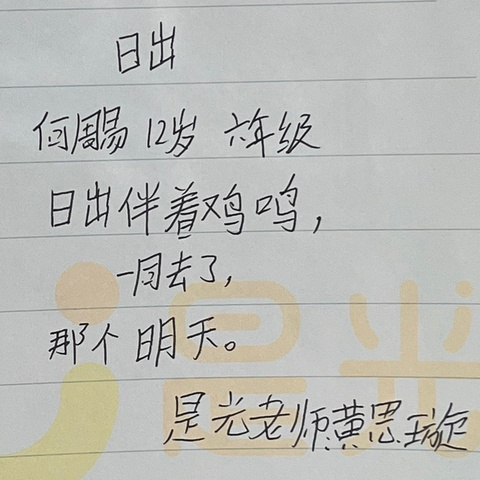 日出
何周赐 12岁 六年级
日出伴着鸡鸣,
一同去了,
那个明天。
是光老师:黄思璇
是光